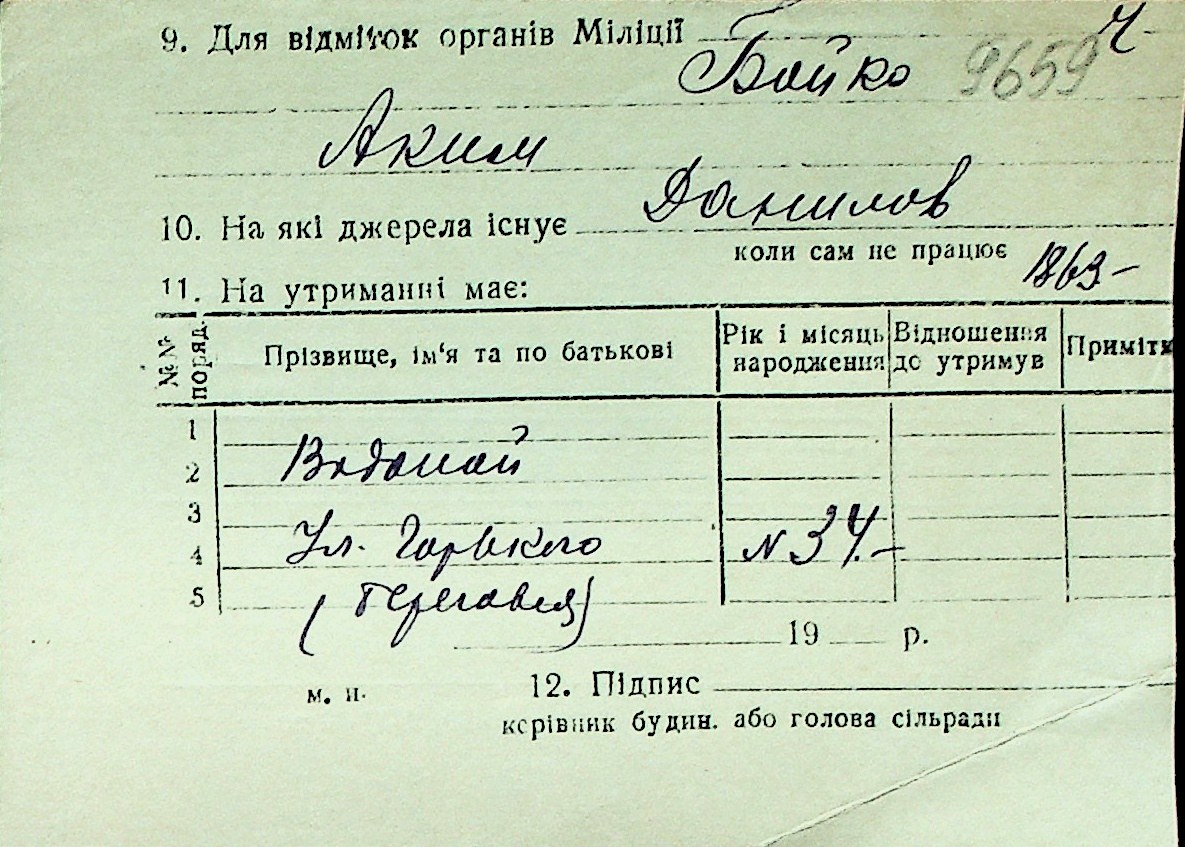 9. Для відміток органів Міліції Ч
Бойко 9659
Аким
10. На які джерела існує Данилов
коли сам не працює
1863-
11. На утриманні має:
№№ поряд. Прізвище, ім'я та по батькові Рік і місяць народження Відношення до утримув Примітк
1
2 Водопой
3
4 Ул. Горького N 34.-
5 (Береговая)
19 р.
м. п. 12. Підпис
керівник будин. або голова сільради